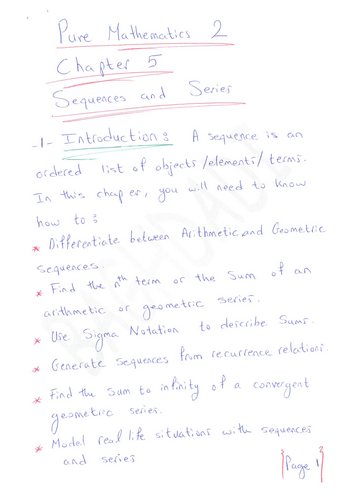 Pure Mathematics 2
Chapter 5
Sequences and Series
-1- Introduction: A sequence is an
ordered list of objects/elements/terms.
In this chaper, you will need to know
how to:
* Differentiate between Arithmetic and Geometric
sequences.
* Find the nth term or the Sum of an
arithmetic or geometric series.
* Use Sigma Notation to describe Sums.
* Generate Sequences from recurrence relations.
* Find the Sum to infinity of a convergent
geometric series.
* Model real life situations with sequences
and series
Page 1